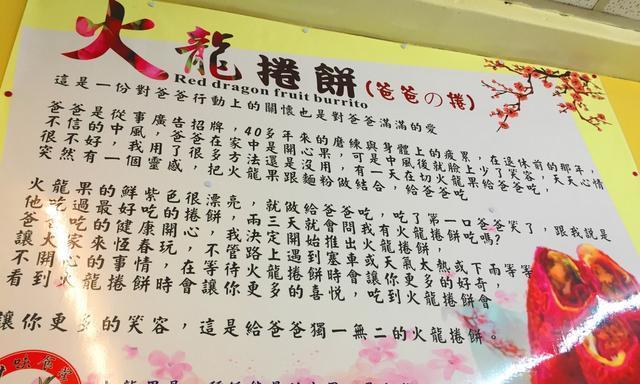 火龍捲餅(爸爸の捲)
Red dragon fruit burrito
這是一份對爸爸行動上的關懷也是對爸爸滿滿的愛
爸爸是從事廣告招牌，40多年來的磨練與身體上的疲累，在退休前的那年，
不信的中風，爸爸在家中是開心果，可是中風後就臉上少了笑容，天天心情
很不好，我用了很多方法還是沒用，有一天在切火龍果給爸爸吃，
突然有一個靈感，把火龍果跟麵粉做結合，給爸爸吃，
火龍果的鮮紫色很漂亮，就做給爸爸吃，吃了第一口爸爸笑了，跟我說是
他吃過最好吃的捲餅，兩三天就會問我有火龍捲餅吃嗎?
爸爸吃的健康開心，我決定開始推出火龍捲餅，
讓大家來恆春玩，不管路上遇到塞車或天氣太熱或下雨等等
不開心的事情，在等待火龍捲餅時會讓你更多的好奇，
看到火龍捲餅時會讓你更多的喜悅，吃到火龍捲餅會
讓你更多的笑容，這是給爸爸獨一無二的火龍捲餅。
味食堂